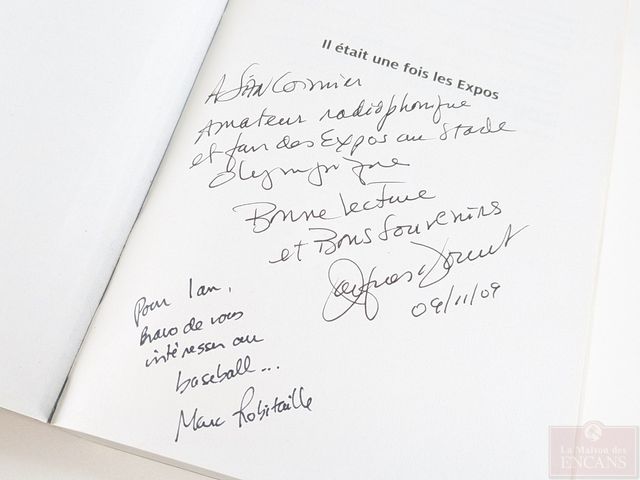 Il était une fois les Expos
A Cormier
Amateur radiophonique
et fan des Expos au Stade
Olympique
Bonne lecture
et Bons Souvenirs
Jacques Doucet
09/11/09
Pour Ian,
Bravo de vous
intéresser au
baseball...
Marc Robitaille
La Maison des
ENCANS